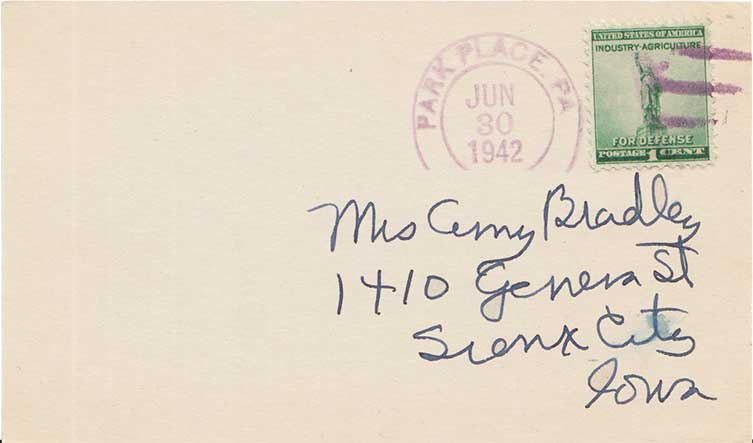 PARK PLACE, PA
JUN
30
1942
UNITED STATES OF AMERICA
INDUSTRY-AGRICULTURE
FOR DEFENSE
POSTAGE 1 CENT
Mrs Amy Bradley
1410 Geneva St
Sioux City
Iowa